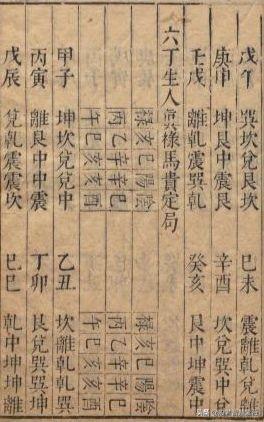 戊午 巽坎兌艮坎 己未 震離乹兌離
庚申 坤艮中震艮 辛酉 坎兌巽中兌
壬戌 離乹震巽乹 癸亥 艮中坤震中
六丁生人眞祿馬貴定局
陰己酉 陰己酉
陽辛亥 陽辛亥
巳辛亥 巳辛亥
亥乙巳 亥乙巳
祿丙午 祿丙午
甲子 坤坎兌兌中 乙丑 坎離乹乹巽
丙寅 離艮中中震 丁卯 艮兌巽巽坤
戊辰 兌乹震震坎 己巳 乹中坤坤離